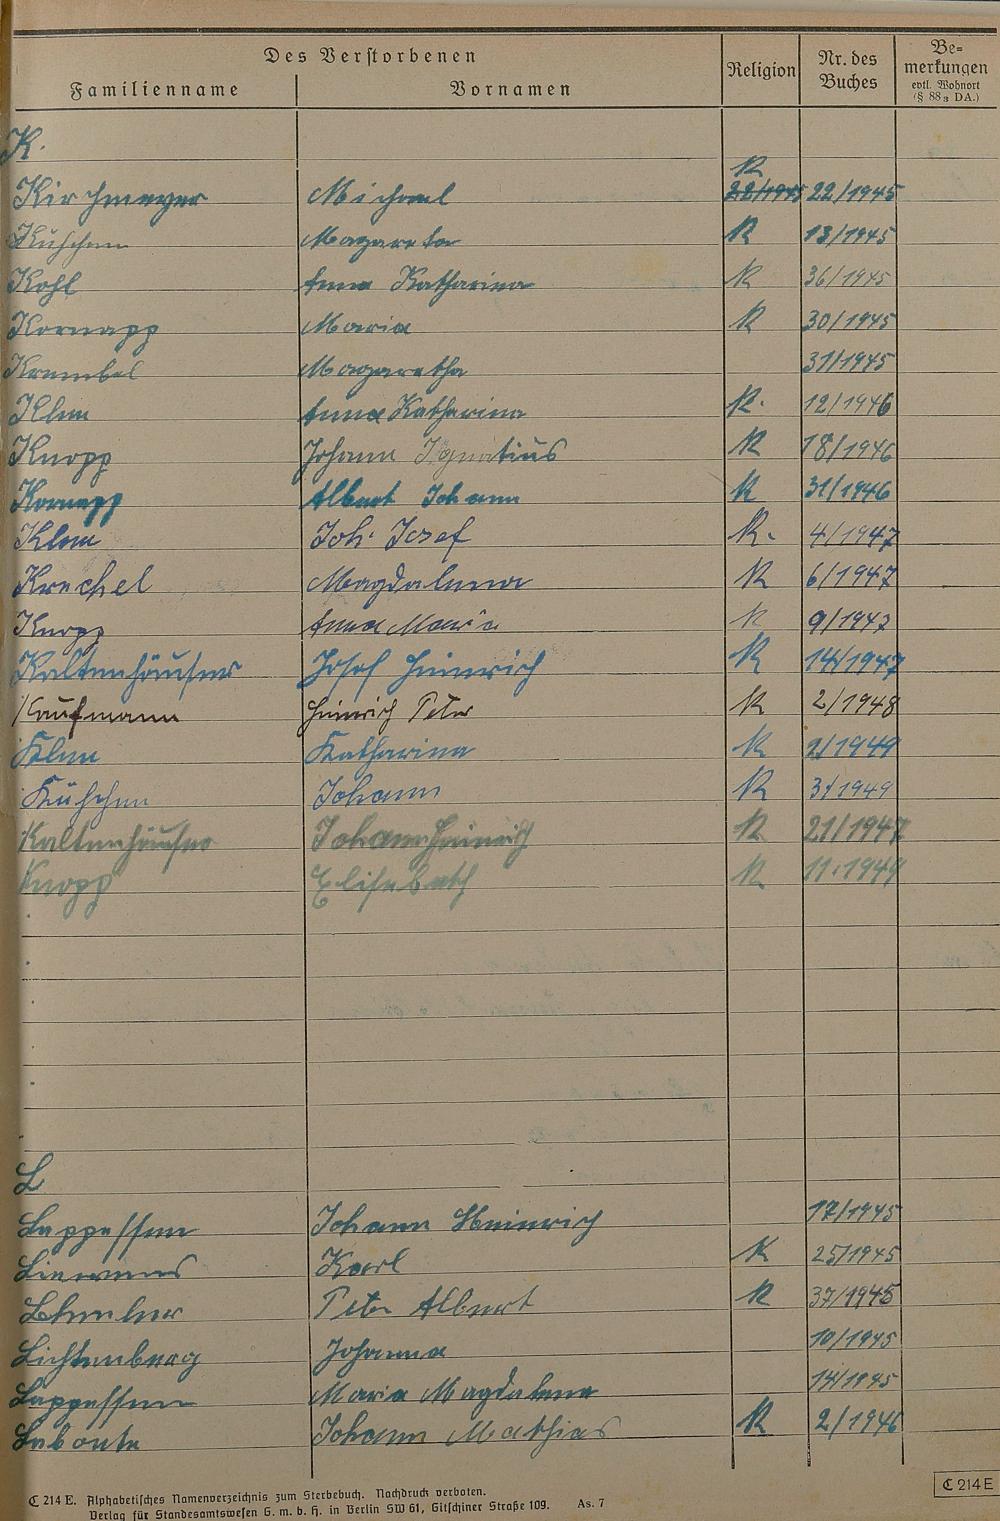 Des Verstorbenen
Familienname Vornamen Religion Nr. des Buches Bemerkungen evtl. Wohnort (§ 88 3 DA.)
K.
K
Kirchmeyer Michael 22/1945 22/1945
Küschen Magareta K 13/1945
Kohl Anna Katharina K 36/1945
Kornapp Maria K 30/1945
Krembel Magaretha 31/1945
Klem Anna Katharina K. 12/1946
Knopp Johann Ignatius K 18/1946
Kornepp Albert Johann K 31/1946
Klem Joh. Josef K. 4/1947
Krechel Magdalena K 6/1947
Knopp Anna Maria K 9/1947
Kaltenhäuser Josef Heinrich K 14/1947
Kaufmann Heinrich Peter K 2/1948
Klem Katharina K 2/1949
Küschen Johann K 3/1949
Kaltenhäuser Johann Heinrich K 21/1947
Knopp Elisabeth K. 11.1949
L
Lappessen Johann Heinrich 17/1945
Karl K 25/1945
Peter Albert K 37/1945
Lichtenberg Johanna 10/1945
Lappessen Maria Magdalena 14/1945
Labonte Johann Mathias K 2/1946
C 214 E. Alphabetisches Namenverzeichnis zum Sterbebuch. Nachdruck verboten.
Verlag für Standesamtswesen G. m. b. H. in Berlin SW 61, Gitschiner Straße 109. As. 7
C 214 E